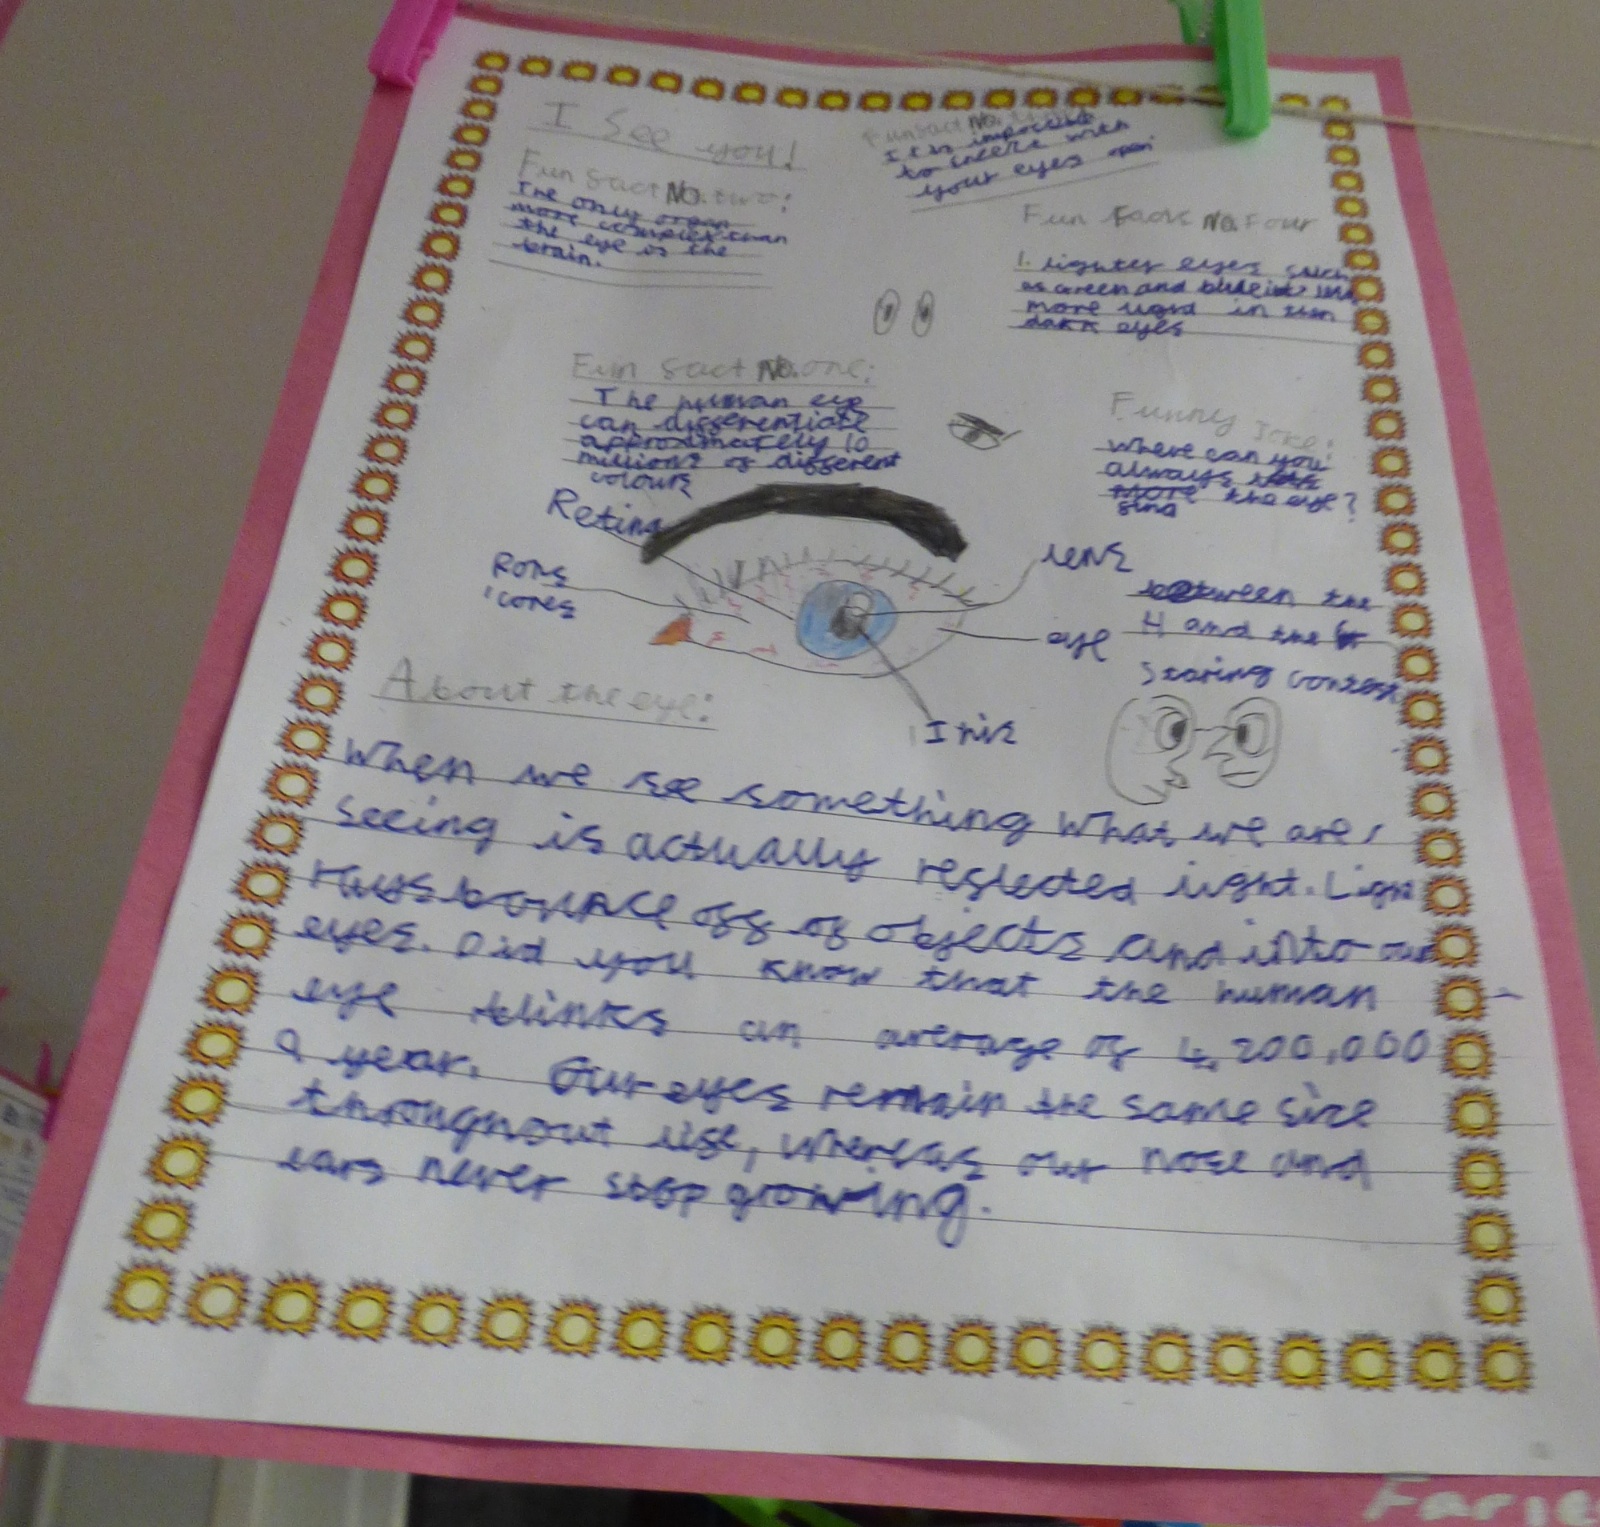 I see you!
Fun fact No. two:
The only organ
more complex than
the eye is the
brain.
Fun fact No.
It is impossible
to sneeze with
your eyes open
Fun Fact No. Four
1. lighter eyes such
as green and blue
more light in
dark eyes
Fun fact No. one:
The human eye
can differentiate
approximately 10
millions of different
colours
Funny Joke:
Where can you
always
the eye?
find
between the
H and the
Staring contest
Retina
Rods
cones
lens
eye
Iris
About the eye:
When we see something what we are
seeing is actually reflected light. Light
rays bounce off of objects and into our
eyes. Did you know that the human
eye blinks an average of 4,200,000
a year. Our eyes remain the same size
throughout life, whereas our nose and
ears never stop growing.